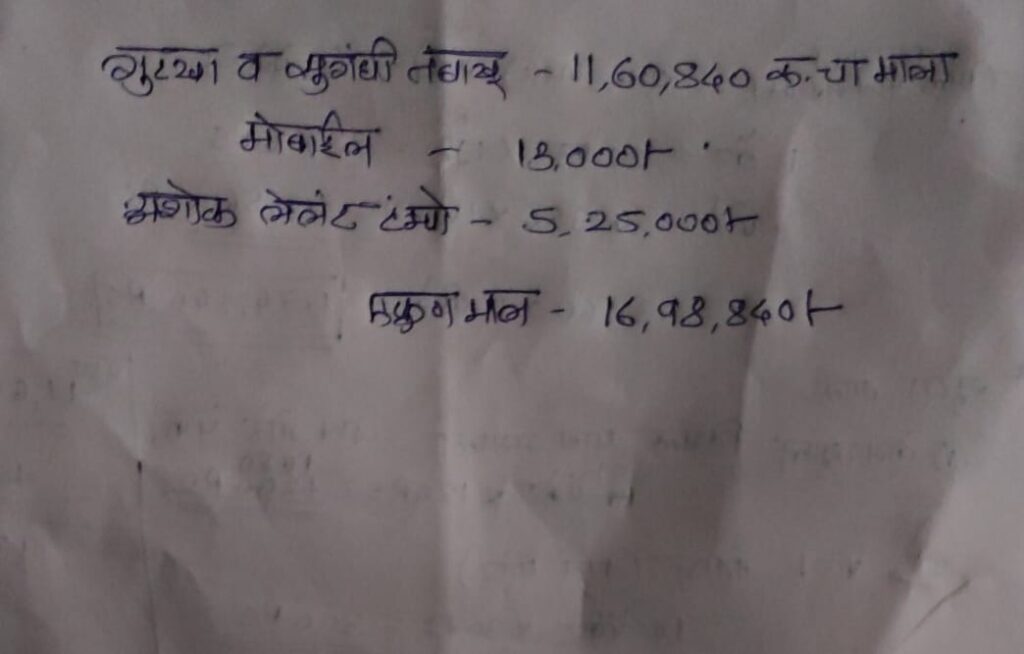 गुटखा व सुगंधी तंबाखू - 11,60,840 रू. चा माल
मोबाईल - 13,000/-
अशोक लेलंट टेम्पो - 5,25,000/-
एकुण माल - 16,98,840/-